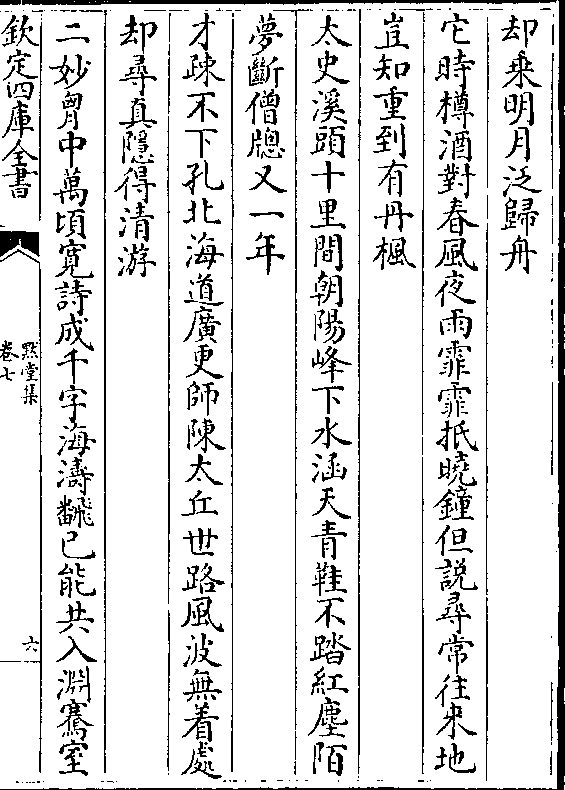 却乗明月泛歸舟
它時樽酒對春風夜雨霏霏抵曉鐘但説尋常往来地
豈知重到有丹楓
太史溪頭十里間朝陽峰下水涵天青鞋不踏紅塵陌
夢斷僧牎又一年
才疎不下孔北海道廣更師陳太丘世路風波無着處
却尋真隱得清游
二妙胷中萬頃寛詩成千字海濤飜已能共入淵騫室
欽定四庫全書
默堂集
卷七
六